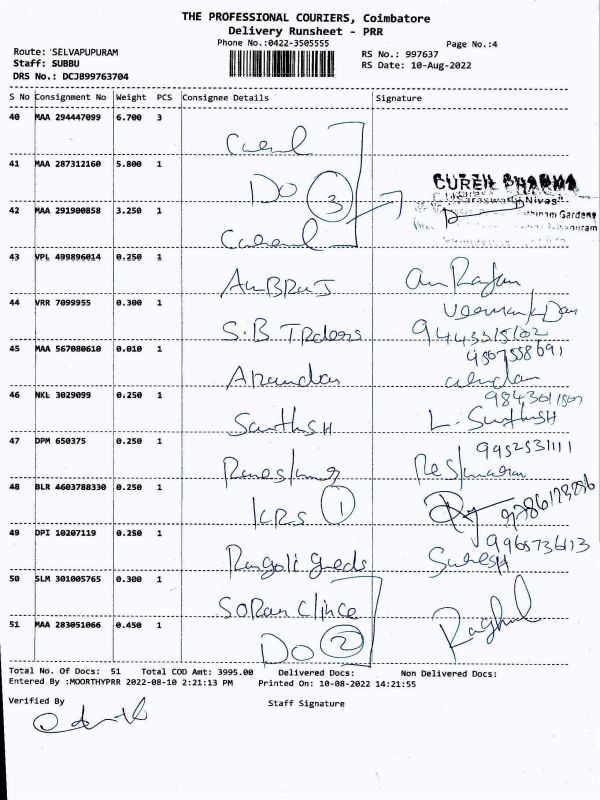 THE PROFESSIONAL COURIERS, Coimbatore
Delivery Runsheet - PRR
Phone No.:0422-3505555
Page No.:4
Route: 'SELVAPUPURAM
Staff: SUBBU
DRS No.: DCJB99763704
RS No.: 997637
RS Date: 10-Aug-2022
S No Consignment No Weight PCS Consignee Details Signature
40 MAA 294447099 6.700 3
41 MAA 287312160 5.800 1
DO 3
CUREN PHARMA
"Saraswathi Nivas"
Gardens
42 MAA 291900858 3.250 1
43 VPL 499896014 0.250 1
44 VRR 7099955 0.300 1
S.B TRders 9443315102
9507558691
45 MAA 567080610 0.010 1
46 NKL 3029099 0.250 1
SanthsH L. SunthusH
47 DPM 650375 0.250 1
9952531111
48 BLR 4603788330 0.250 1
KRS 1
49 DPI 10207119 0.250 1
9965736113
Rangoli SuresH
50 SLM 301005765 0.300 1
51 MAA 283051066 0.450 1
DO 2 Raghul
Total No. Of Docs: 51 Total COD Amt: 3995.00 Delivered Docs: Non Delivered Docs:
Entered By :MOORTHYPRR 2022-08-10 2:21:13 PM Printed On: 10-08-2022 14:21:55
Verified By
Staff Signature